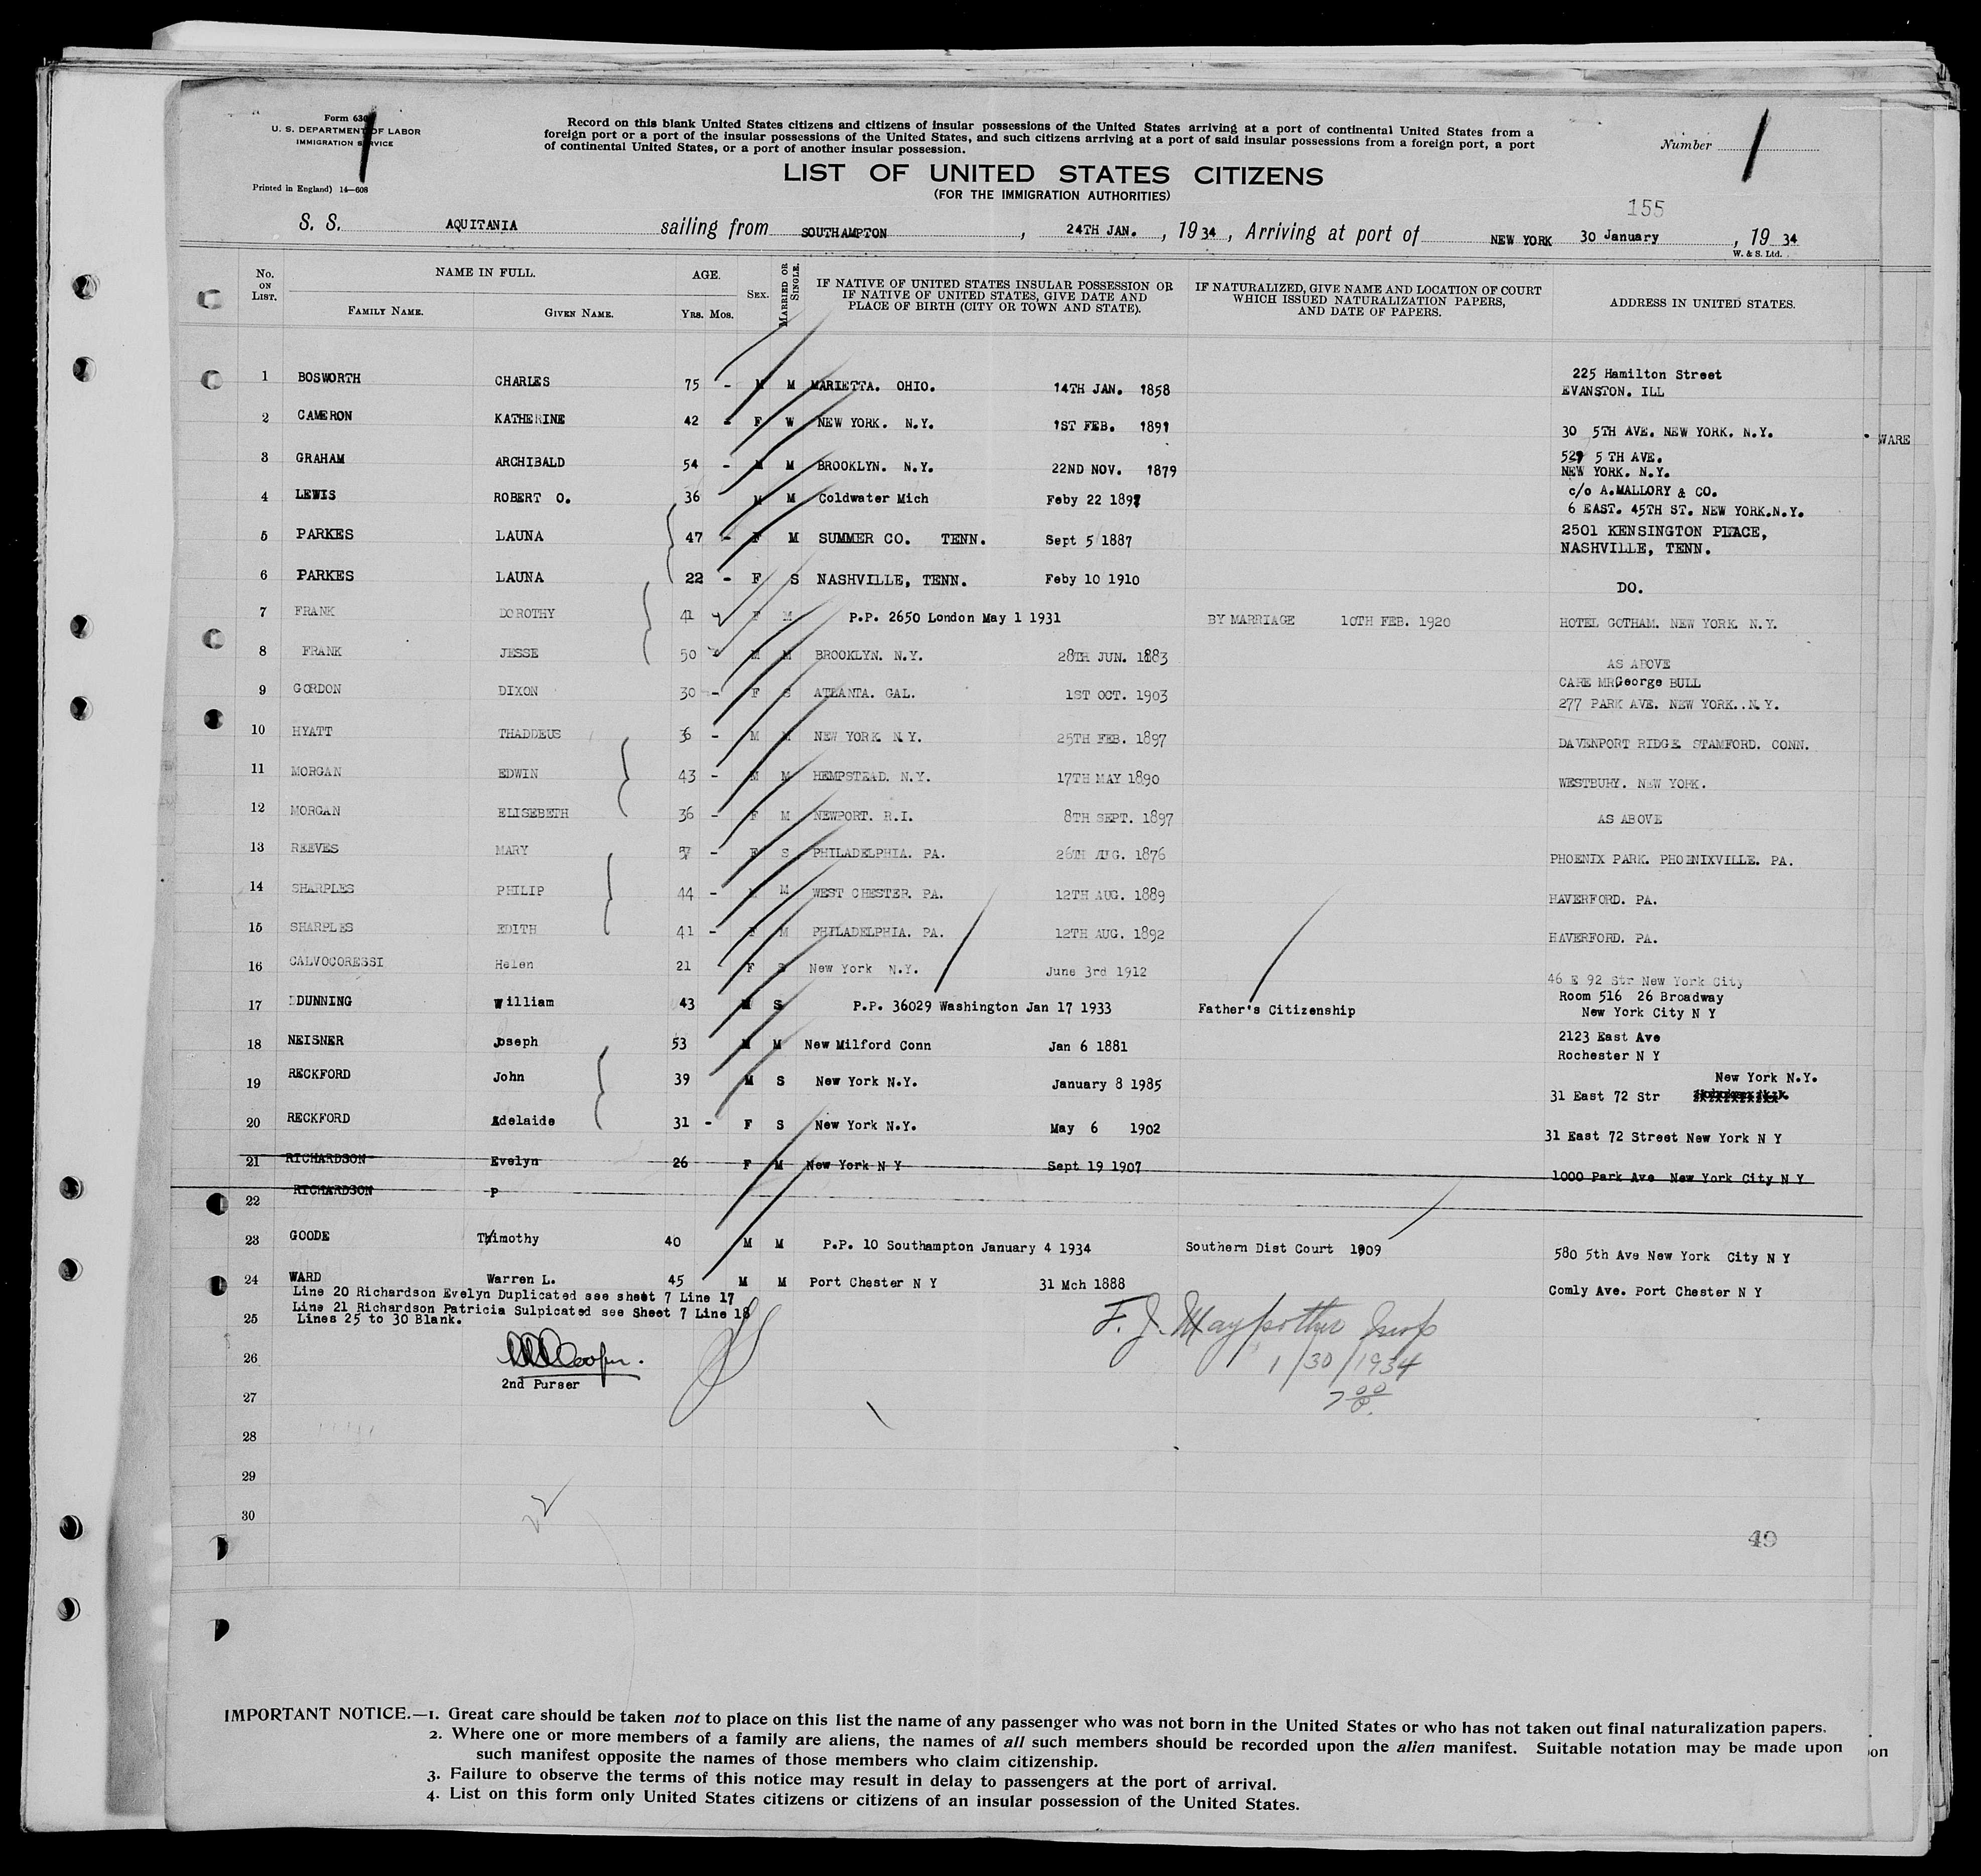 Form 630
U. S. DEPARTMENT OF LABOR
IMMIGRATION SERVICE
Printed in England) 14—608
Record on this blank United States citizens and citizens of insular possessions of the United States arriving at a port of continental United States from a
foreign port or a port of the insular possessions of the United States, and such citizens arriving at a port of said insular possessions from a foreign port, a port
of continental United States, or a port of another insular possession.
Number
LIST OF UNITED STATES CITIZENS
(FOR THE IMMIGRATION AUTHORITIES)
155
S. S. AQUITANIA sailing from SOUTHAMPTON, 24TH JAN., 1934, Arriving at port of NEW YORK 30 January, 19 34
W. & S. Ltd.
No. ON LIST. NAME IN FULL. AGE. SEX. MARRIED OR SINGLE. IF NATIVE OF UNITED STATES INSULAR POSSESSION OR IF NATIVE OF UNITED STATES, GIVE DATE AND PLACE OF BIRTH (CITY OR TOWN AND STATE). IF NATURALIZED, GIVE NAME AND LOCATION OF COURT WHICH ISSUED NATURALIZATION PAPERS, AND DATE OF PAPERS. ADDRESS IN UNITED STATES.
FAMILY NAME. GIVEN NAME. YRS. MOS.
1 BOSWORTH CHARLES 75 - M M MARIETTA. OHIO. 14TH JAN. 1858 225 Hamilton Street
EVANSTON. ILL
2 CAMERON KATHERINE 42 - F W NEW YORK. N.Y. 1ST FEB. 1891 30 5TH AVE. NEW YORK. N.Y.
WARE
3 GRAHAM ARCHIBALD 54 - M M BROOKLYN. N.Y. 22ND NOV. 1879 529 5 TH AVE.
NEW YORK. N.Y.
4 LEWIS ROBERT O. 36 M M Coldwater Mich Feby 22 189 c/o A.MALLORY & CO.
6 EAST. 45TH ST. NEW YORK.N.Y.
5 PARKES LAUNA 47 - F M SUMMER CO. TENN. Sept 5 1887 2501 KENSINGTON PLACE,
NASHVILLE, TENN.
6 PARKES LAUNA 22 - F S NASHVILLE, TENN. Feby 10 1910 DO.
7 FRANK DOROTHY 41 F M P.P. 2650 London May 1 1931 BY MARRIAGE 10TH FEB. 1920 HOTEL GOTHAM. NEW YORK. N.Y.
8 FRANK JESSE 50 M M BROOKLYN. N.Y. 28TH JUN. 1883 AS ABOVE
9 GORDON DIXON 30 - F S ATLANTA. GAL. 1ST OCT. 1903 CARE MR George BULL
277 PARK AVE. NEW YORK..N.Y.
10 HYATT THADDEUS 36 - M M NEW YORK. N.Y. 25TH FEB. 1897 DAVENPORT RIDGE. STAMFORD. CONN.
11 MORGAN EDWIN 43 - M M HEMPSTEAD. N.Y. 17TH MAY 1890 WESTBURY. NEW YORK.
12 MORGAN ELISEBETH 36 - F M NEWPORT. R.I. 8TH SEPT. 1897 AS ABOVE
13 REEVES MARY 57 - F S PHILADELPHIA. PA. 26TH AUG. 1876 PHOENIX PARK. PHOENIXVILLE. PA.
14 SHARPLES PHILIP 44 - M M WEST CHESTER. PA. 12TH AUG. 1889 HAVERFORD. PA.
15 SHARPLES EDITH 41 - F M PHILADELPHIA. PA. 12TH AUG. 1892 HAVERFORD. PA.
16 CALVOCORESSI Helen 21 F S New York N.Y. June 3rd 1912 46 E 92 Str New York City
17 DUNNING William 43 M S P.P. 36029 Washington Jan 17 1933 Father's Citizenship Room 516 26 Broadway
New York City N Y
18 NEISNER Joseph 53 M M New Milford Conn Jan 6 1881 2123 East Ave
Rochester N Y
19 RECKFORD John 39 M S New York N.Y. January 8 1985 New York N.Y.
31 East 72 Str
20 RECKFORD Adelaide 31 - F S New York N.Y. May 6 1902 31 East 72 Street New York N Y
21 RICHARDSON Evelyn 26 F M New York N Y Sept 19 1907 1000 Park Ave New York City N Y
22 RICHARDSON P
23 GOODE Thimothy 40 M M P.P. 10 Southampton January 4 1934 Southern Dist Court 1909 580 5th Ave New York City N Y
24 WARD Warren L. 45 M M Port Chester N Y 31 Mch 1888 Comly Ave. Port Chester N Y
Line 20 Richardson Evelyn Duplicated see sheet 7 Line 17
Line 21 Richardson Patricia Sulpicated see Sheet 7 Line 18
25 Lines 25 to 30 Blank.
26
2nd Purser
1/30/1934
27
28
29
30
49
IMPORTANT NOTICE.—1. Great care should be taken not to place on this list the name of any passenger who was not born in the United States or who has not taken out final naturalization papers.
2. Where one or more members of a family are aliens, the names of all such members should be recorded upon the alien manifest. Suitable notation may be made upon
such manifest opposite the names of those members who claim citizenship.
3. Failure to observe the terms of this notice may result in delay to passengers at the port of arrival.
4. List on this form only United States citizens or citizens of an insular possession of the United States.